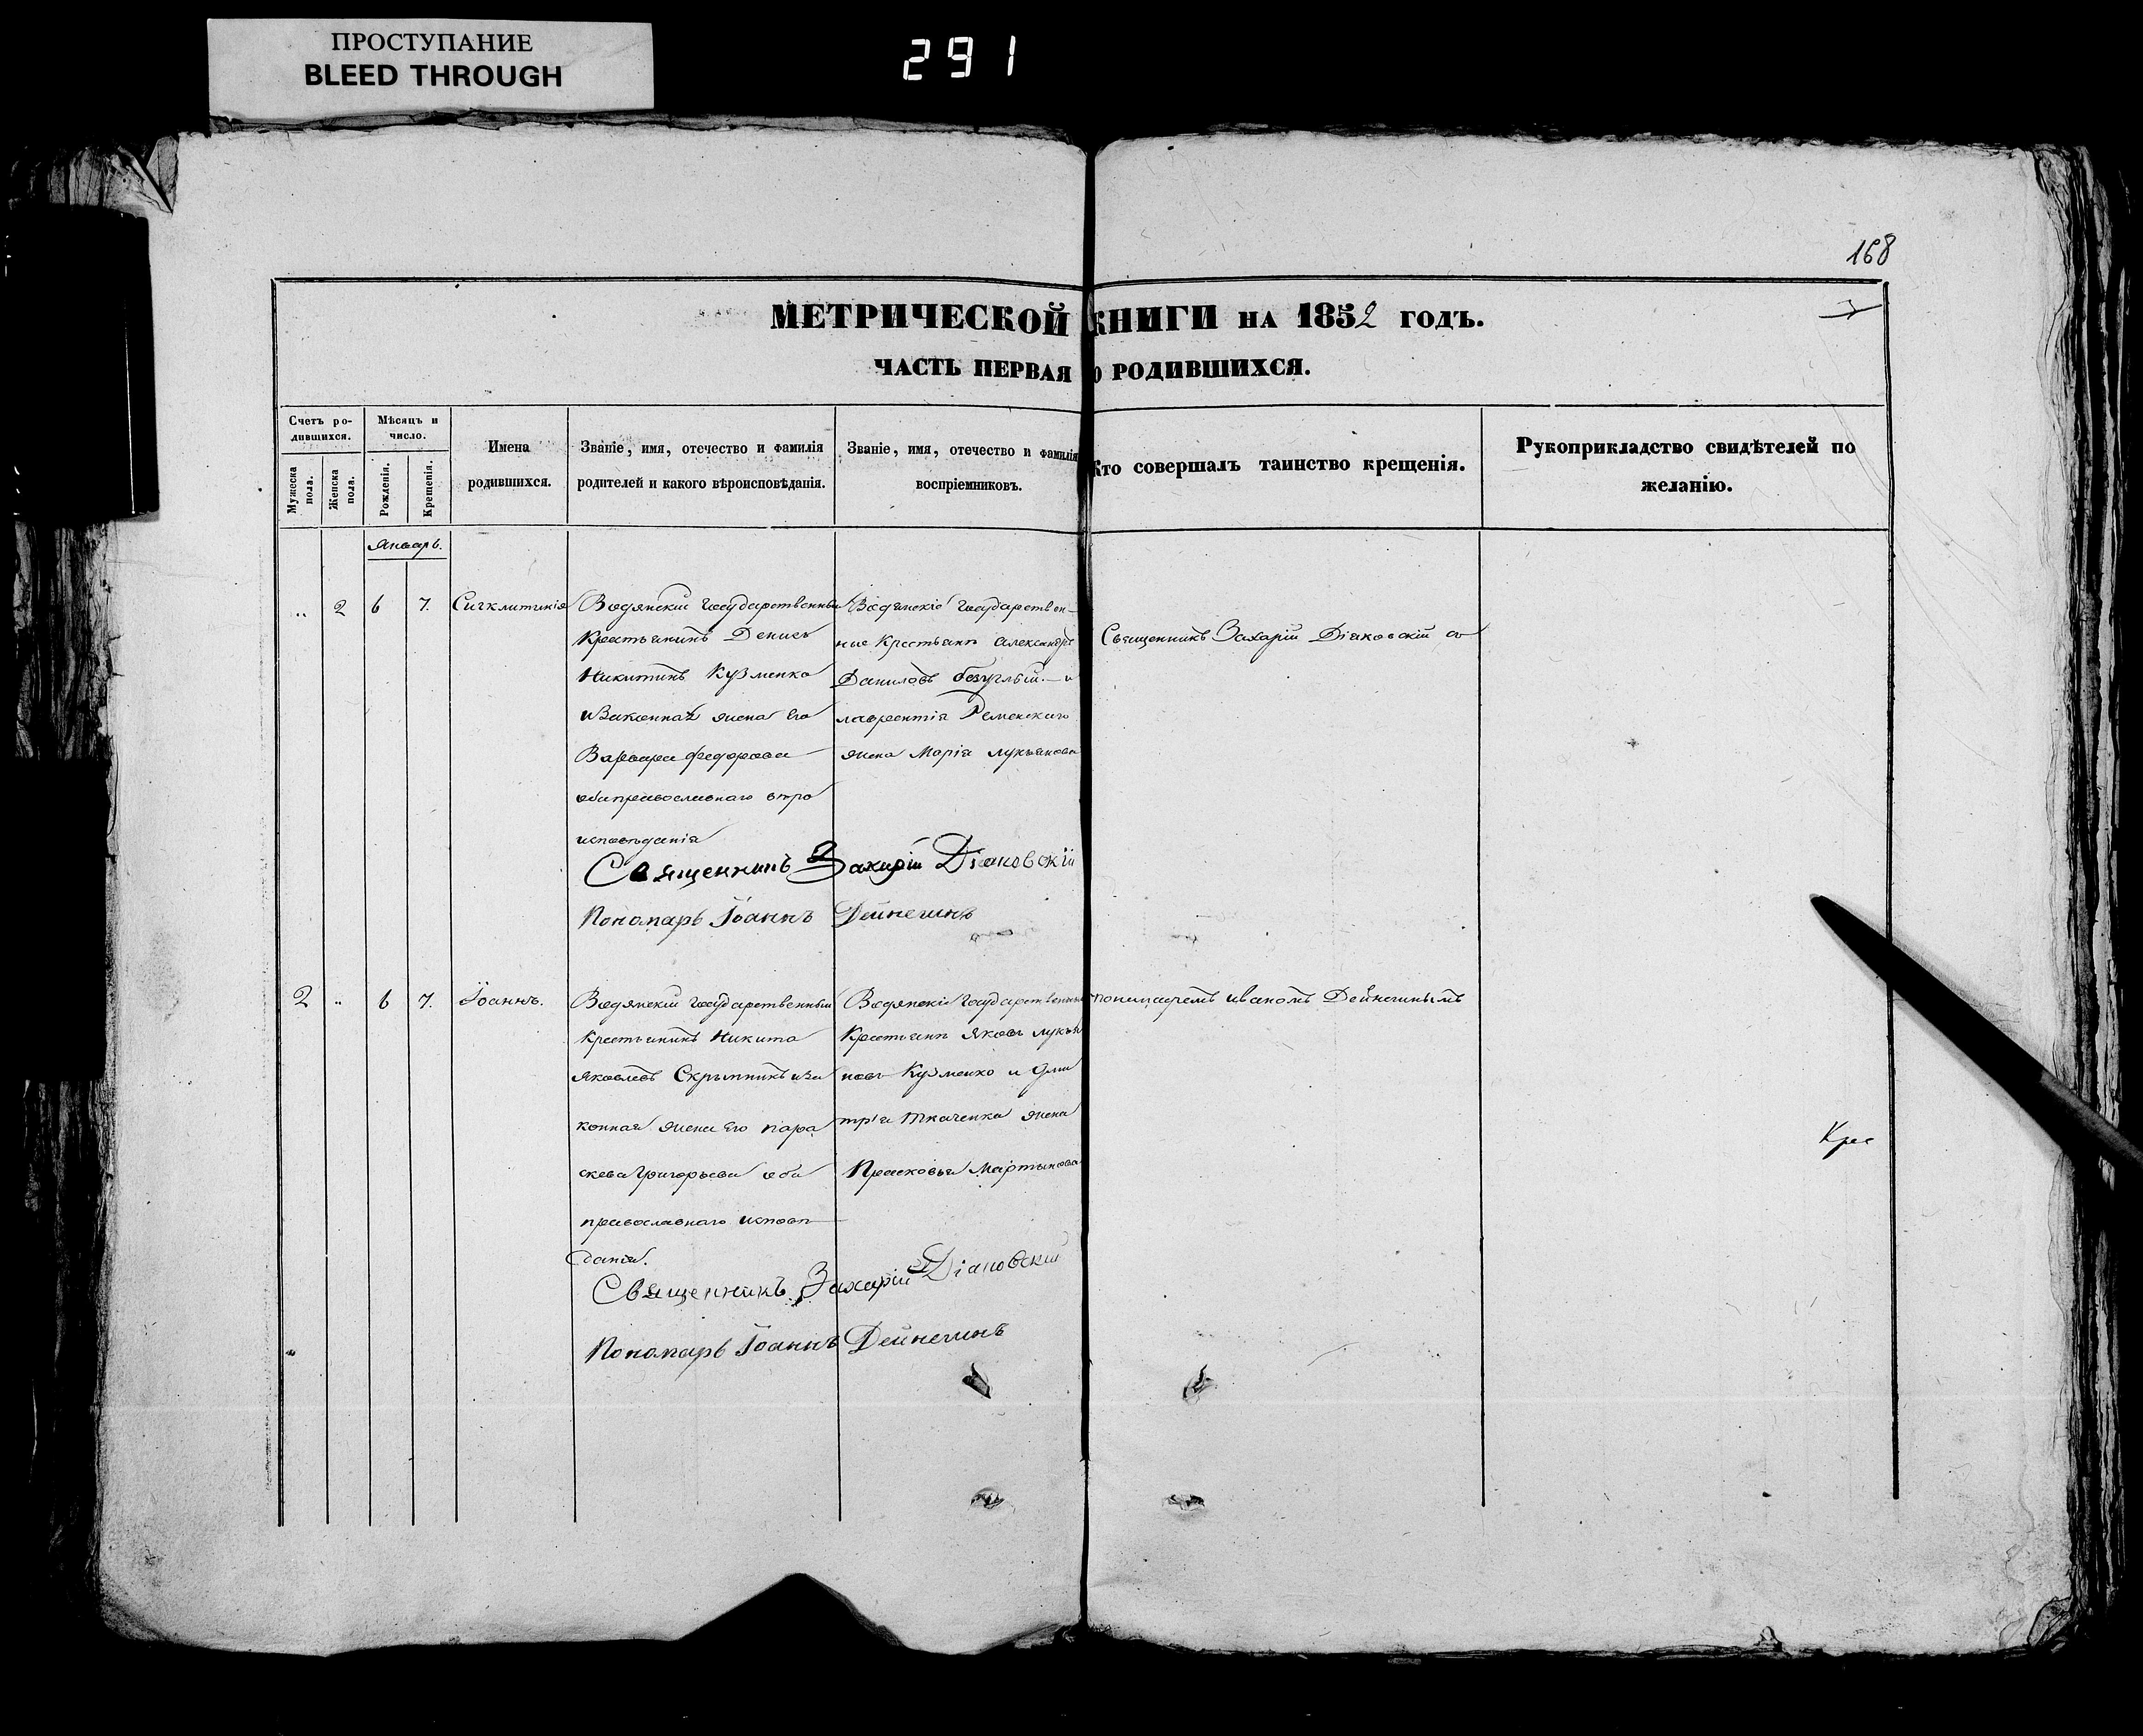 ПРОСТУПАНИЕ
BLEED THROUGH
291
168
МЕТРИЧЕСКОЙ КНИГИ НА 1852 ГОДЪ.
ЧАСТЬ ПЕРВАЯ О РОДИВШИХСЯ.
Счетъ ро-
дившихся.
Мужеска пола.
Женска пола.
Мѣсяцъ и
число.
Рожденія.
Крещенія.
Имена
родившихся.
Званіе, имя, отечество и фамилія
родителей и какого вѣроисповѣданія.
Званіе, имя, отечество и фамилія
воспріемниковъ.
Кто совершалъ таинство крещенія.
Рукоприкладство свидѣтелей по
желанію.
Январь.
„ 2 6 7. Сигклитикія
Водянскій государственный
Крестьянинъ Денисъ
Никитинъ Кузменко
и Законная жена Его
Варвара Федорова
оба православнаго вѣро
исповѣданія
Водянскіе государствен-
ные Крестьяне Александръ
Даниловъ безуглый. и
лаврентія Ременскаго
жена Марія лукьянова
Священникъ Захарій Діяковскій съ
Священникъ Захарій Діаковскій
Пономарь Іоаннъ Дейнегинъ
2 „ 6 7. Іоаннъ.
Водянскій государственный
Крестьянинъ Никита
Яковлевъ Скрыпникъ и за
конная жена Его пара
скева Григорьева оба
православнаго исповѣ
данія.
Водянскіе государственные
Крестьяне Яковъ лукья
новъ Кузменко и Дми
трія Ткаченка жена
Прасковья Мартынова
пономаремъ иваномъ Дейнегинымъ
Священникъ Захарій Діаковскій
Пономарь Іоаннъ Дейнегинъ
Крес